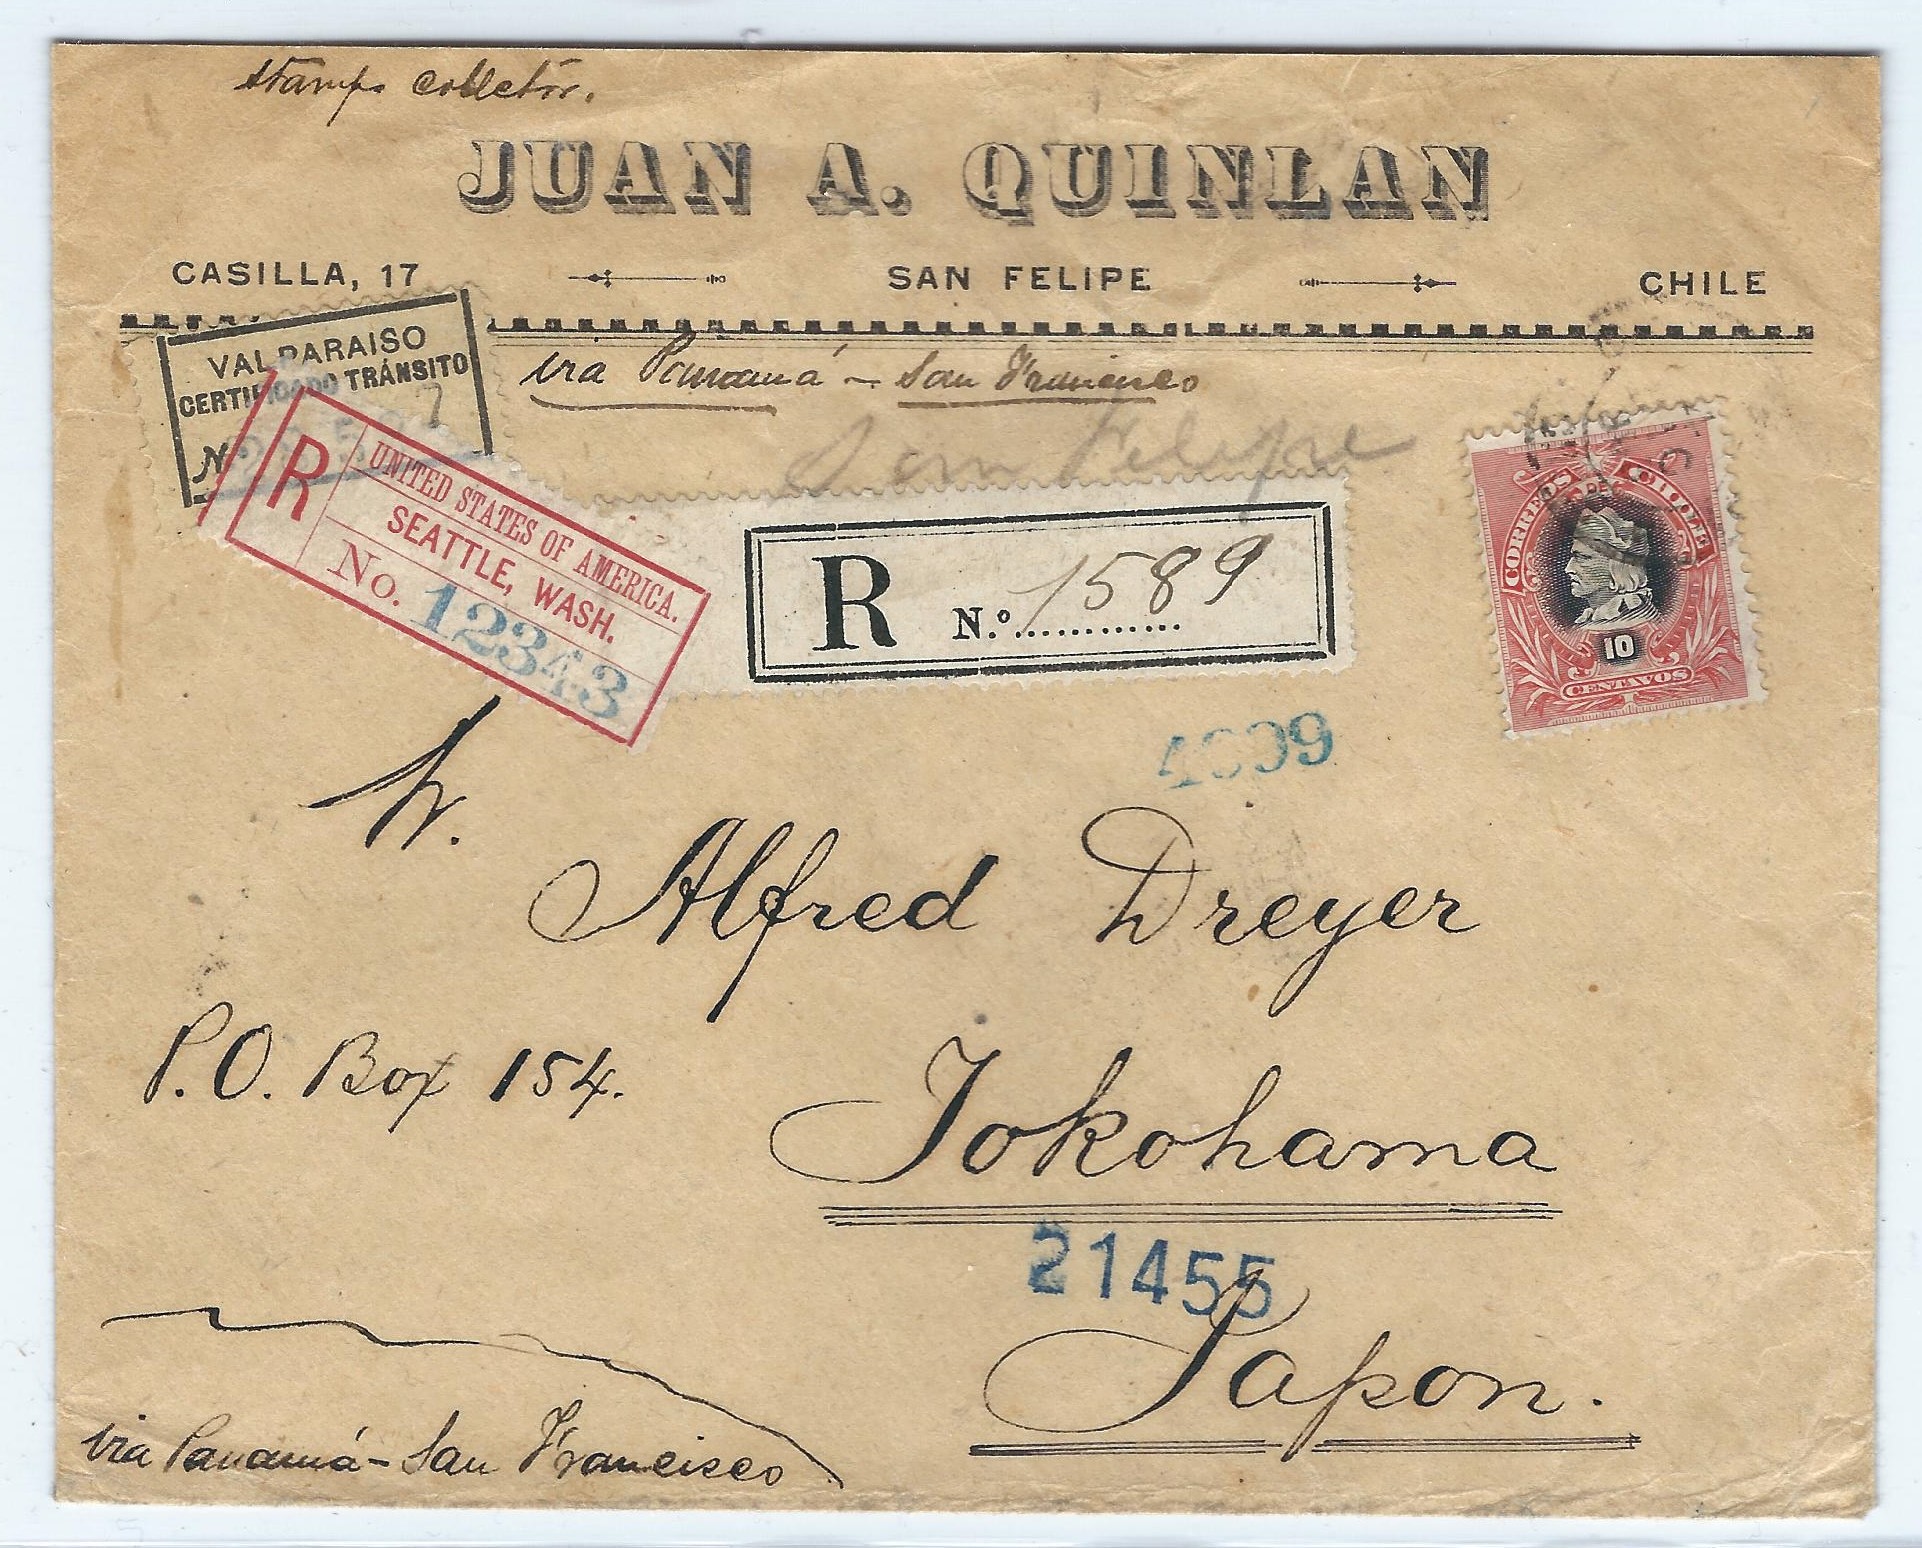 stamps colletor.
JUAN A. QUINLAN
CASILLA, 17 SAN FELIPE CHILE
VALPARAISO
CERTIFICADO TRÁNSITO
N
via Panamá - San Francisco
San Felipe
R
UNITED STATES OF AMERICA.
SEATTLE, WASH.
No. 12343
R N.o 1589
CORREOS DE CHILE
10
CENTAVOS
4099
Alfred Dreyer
P.O. Box 154.
Yokohama
21455
Japon.
via Panamá - San Francisco